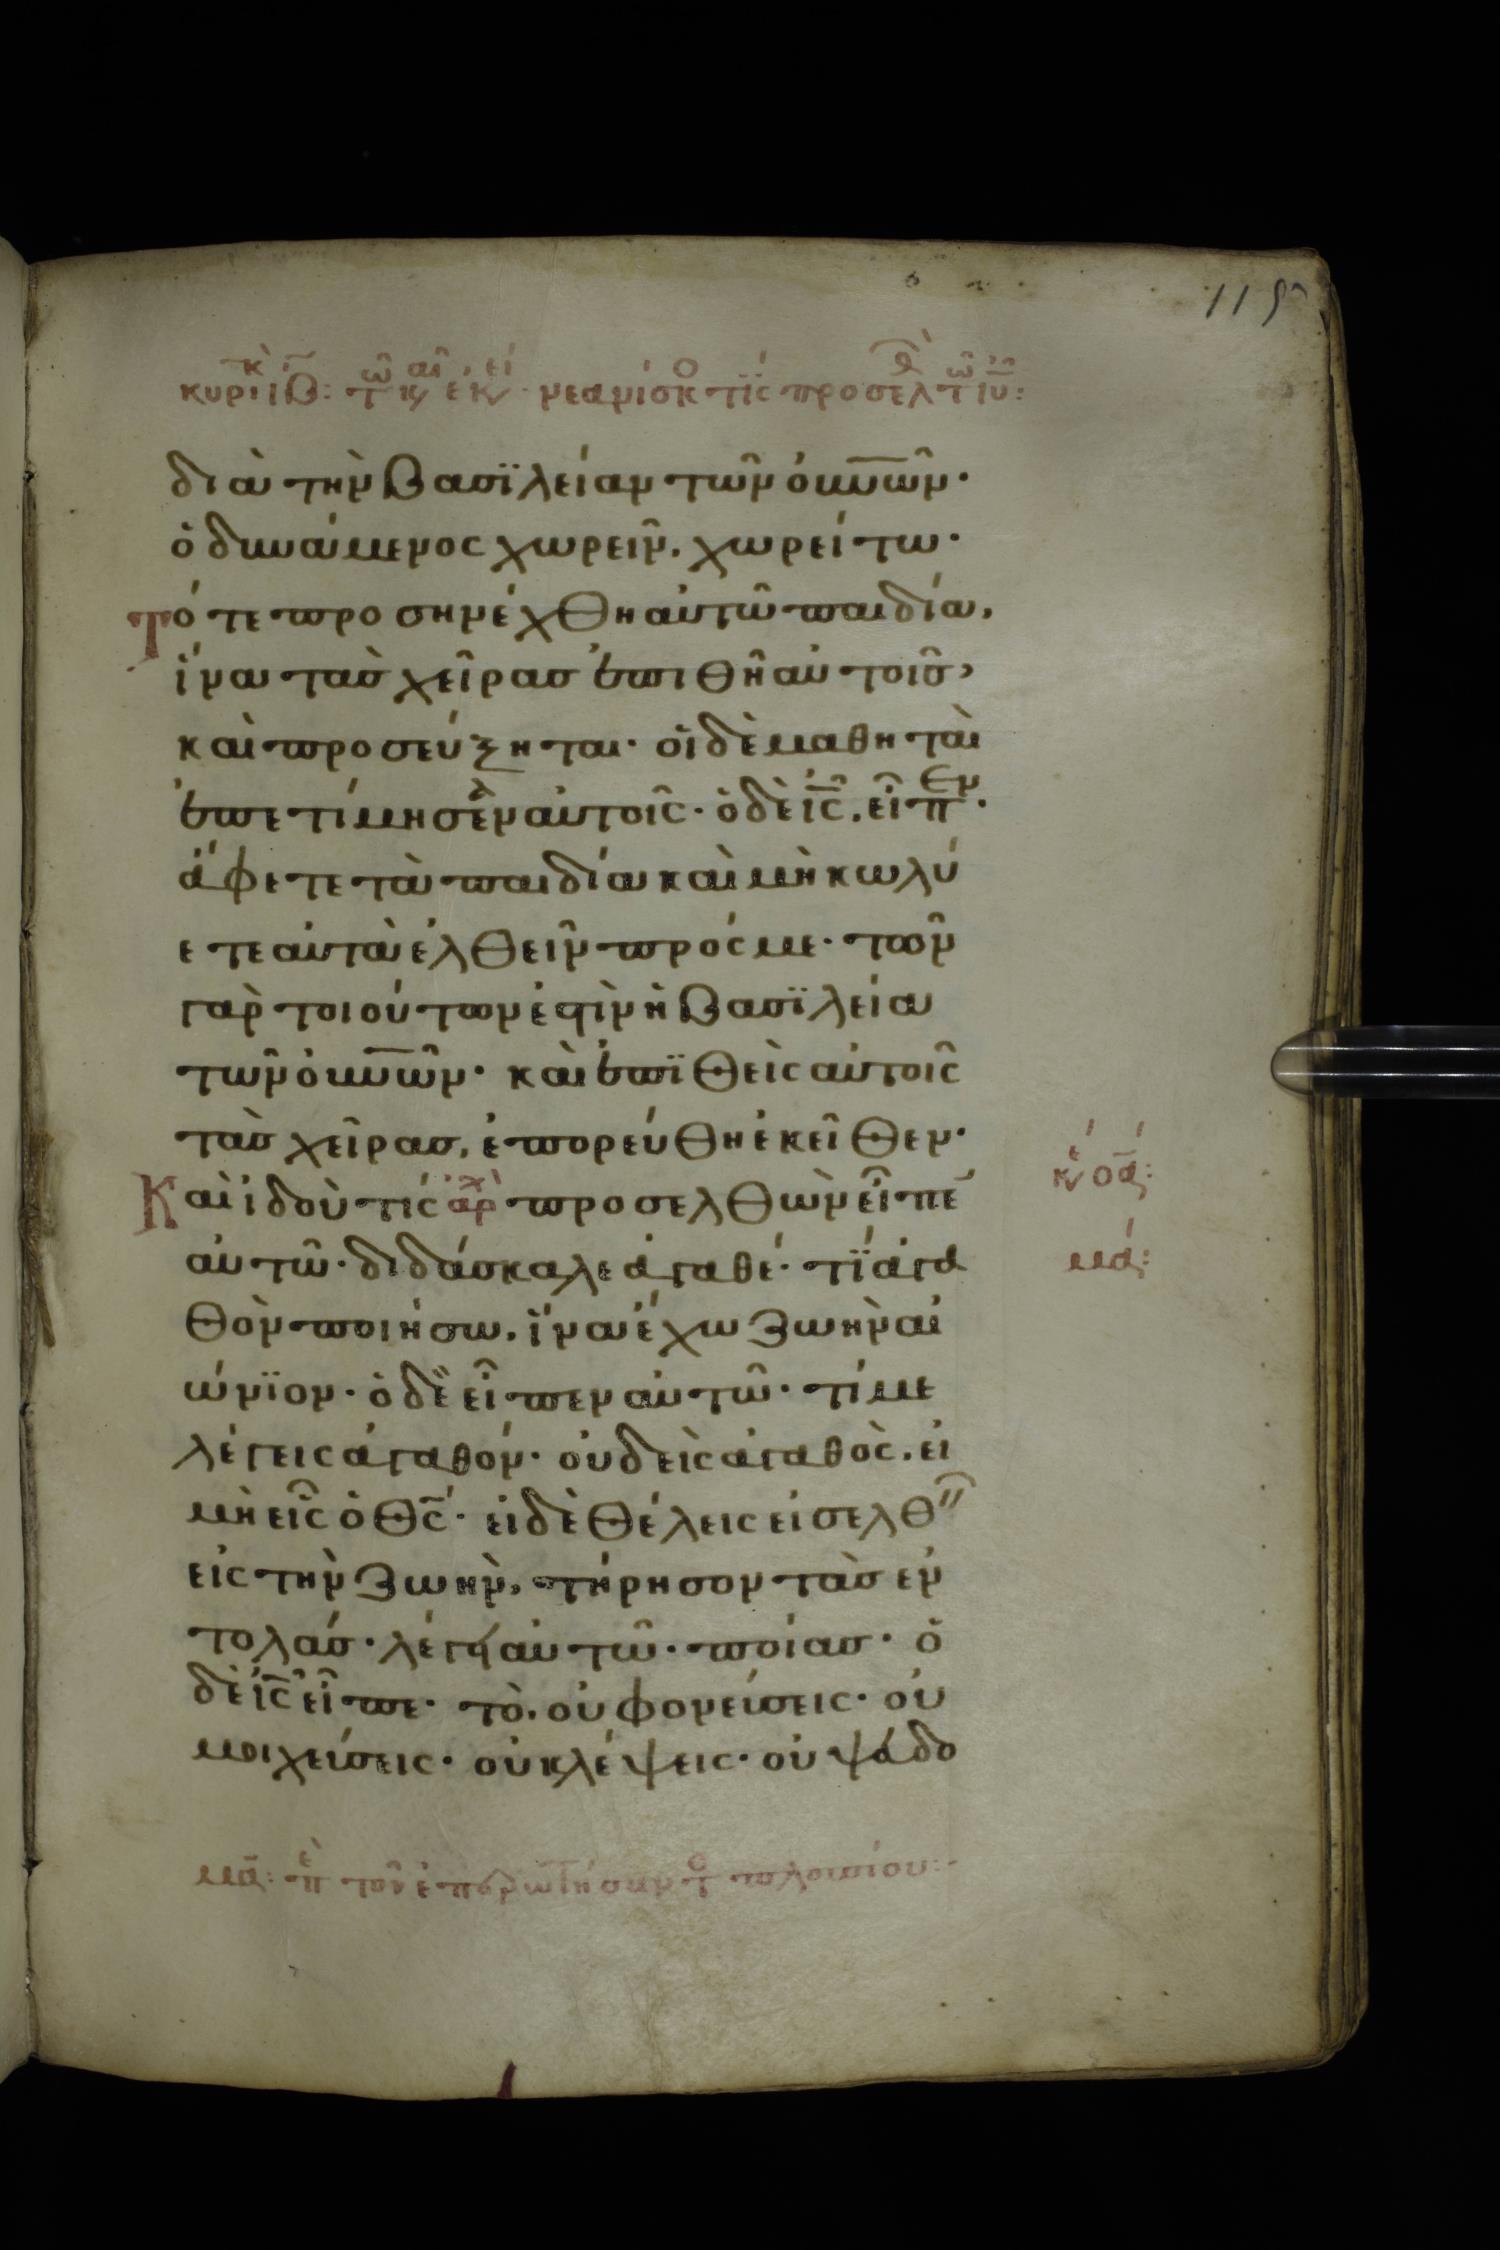 κυριακ ιβ: τω καιρ εκει· νεανίσκος τίς προσελθ τω ιυ:
διὰ τὴν βασϊλείαν τῶν οὐνῶν·
ὁ δυνάμενος χωρεῖν, χωρείτω·
Τότε προσηνέχθη αὐτῶ παιδία,
ἵνα τὰσ χεῖρασ ἐπιθῆ αὐτοῖσ,
καὶ προσεύξηται· οἱ δὲ μαθηταὶ
ἐπετίμησαν αὐτοῖς· ὁ δὲ ἰς, εἶπεν·
ἄφετε τὰ παιδία καὶ μὴ κωλύ
ετε αὐτὰ ἐλθεῖν πρός με· τῶν
γὰρ τοιούτων ἐστὶν ἡ βασϊλεία
τῶν οὐνῶν· καὶ ἐπϊθεὶς αὐτοῖς
τὰσ χεῖρασ, ἐπορεύθη ἐκεῖθεν·
Καὶ ἰδοὺ τίς ἀρχ προσελθὼν εἶπε
αὐτῶ· διδάσκαλε ἀγαθέ· τί ἀγα
θὸν ποιήσω, ἵνα ἔχω ζωὴν αἰ
ώνϊον· ὁ δὲ εἶπεν αὐτῶ· τί με
λέγεις ἀγαθόν· οὐδεὶς ἀγαθὸς, εἰ
μὴ εἷς ὁ θς· εἰ δὲ θέλεις εἰσελθεῖν
εἰς τὴν ζωὴν, τήρησον τὰσ ἐν
τολάσ· λέγει αὐτῶ· ποίασ· ὁ
δὲ ἰς εἶπε· τὸ, οὐ φονεύσεις· οὐ
μοιχεύσεις· οὐ κλέψεις· οὐ ψευδο
119
μα:
μα: π τὸν ἐπερωτήσαντ πλουσίου: